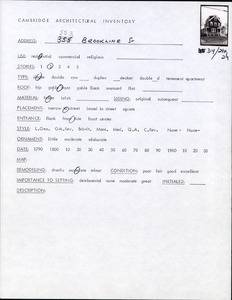 CAMBRIDGE ARCHITECTURAL INVENTORY
353
ADDRESS: 355 BROOKLINE St
USE: residential commercial religious
STORIES: 1 2 3 4 5
TYPE: double row duplex decker double_d tenement apartment
ROOF: hip gable mansard flat
MATERIAL: brick SIDING: original subsequent
PLACEMENT: narrow abutment broad to street square
ENTRANCE: flank side front center
ORNAMENT: little moderate elaborate
DATE: 1790 1800 10 20 30 40 50 60 70 80 90 1900 10 20 30
MAP:
REMODELING: drastic moderate minor CONDITION: poor fair good excellent
IMPORTANCE TO SETTING: detrimental none moderate great INITIALED:
DESCRIPTION: